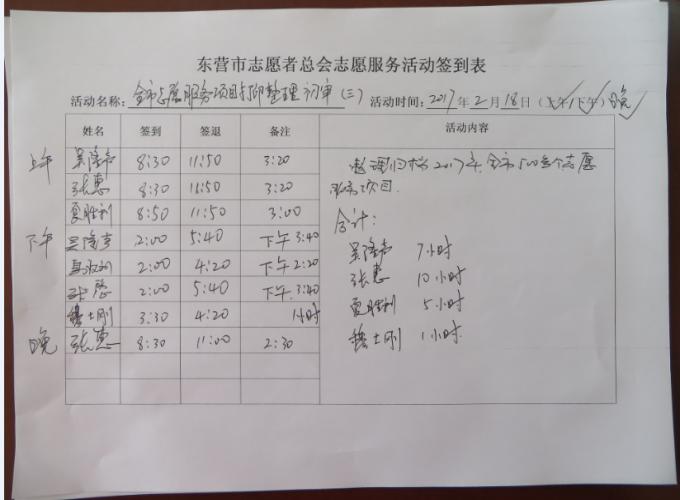 东营市志愿者总会志愿服务活动签到表
活动名称: 全市志愿服务项目 整理 初审 (三) 活动时间: 2017年2月18日 (上午/下午) 晚
姓名 签到 签退 备注 活动内容
上午 吴隆声 8:30 11:50 3:20
张惠 8:30 11:50 3:20
夏胜利 8:50 11:50 3:00
下午 吴隆声 2:00 5:40 下午 3:40
夏胜利 2:00 4:20 下午 2:20
张惠 2:00 5:40 下午 3:40
士刚 3:30 4:20 1小时
晚 张惠 8:30 11:00 2:30
整理归档2017年全市500多个志愿
服务项目.
合计:
吴隆声 7小时
张惠 10小时
夏胜利 5小时
士刚 1小时